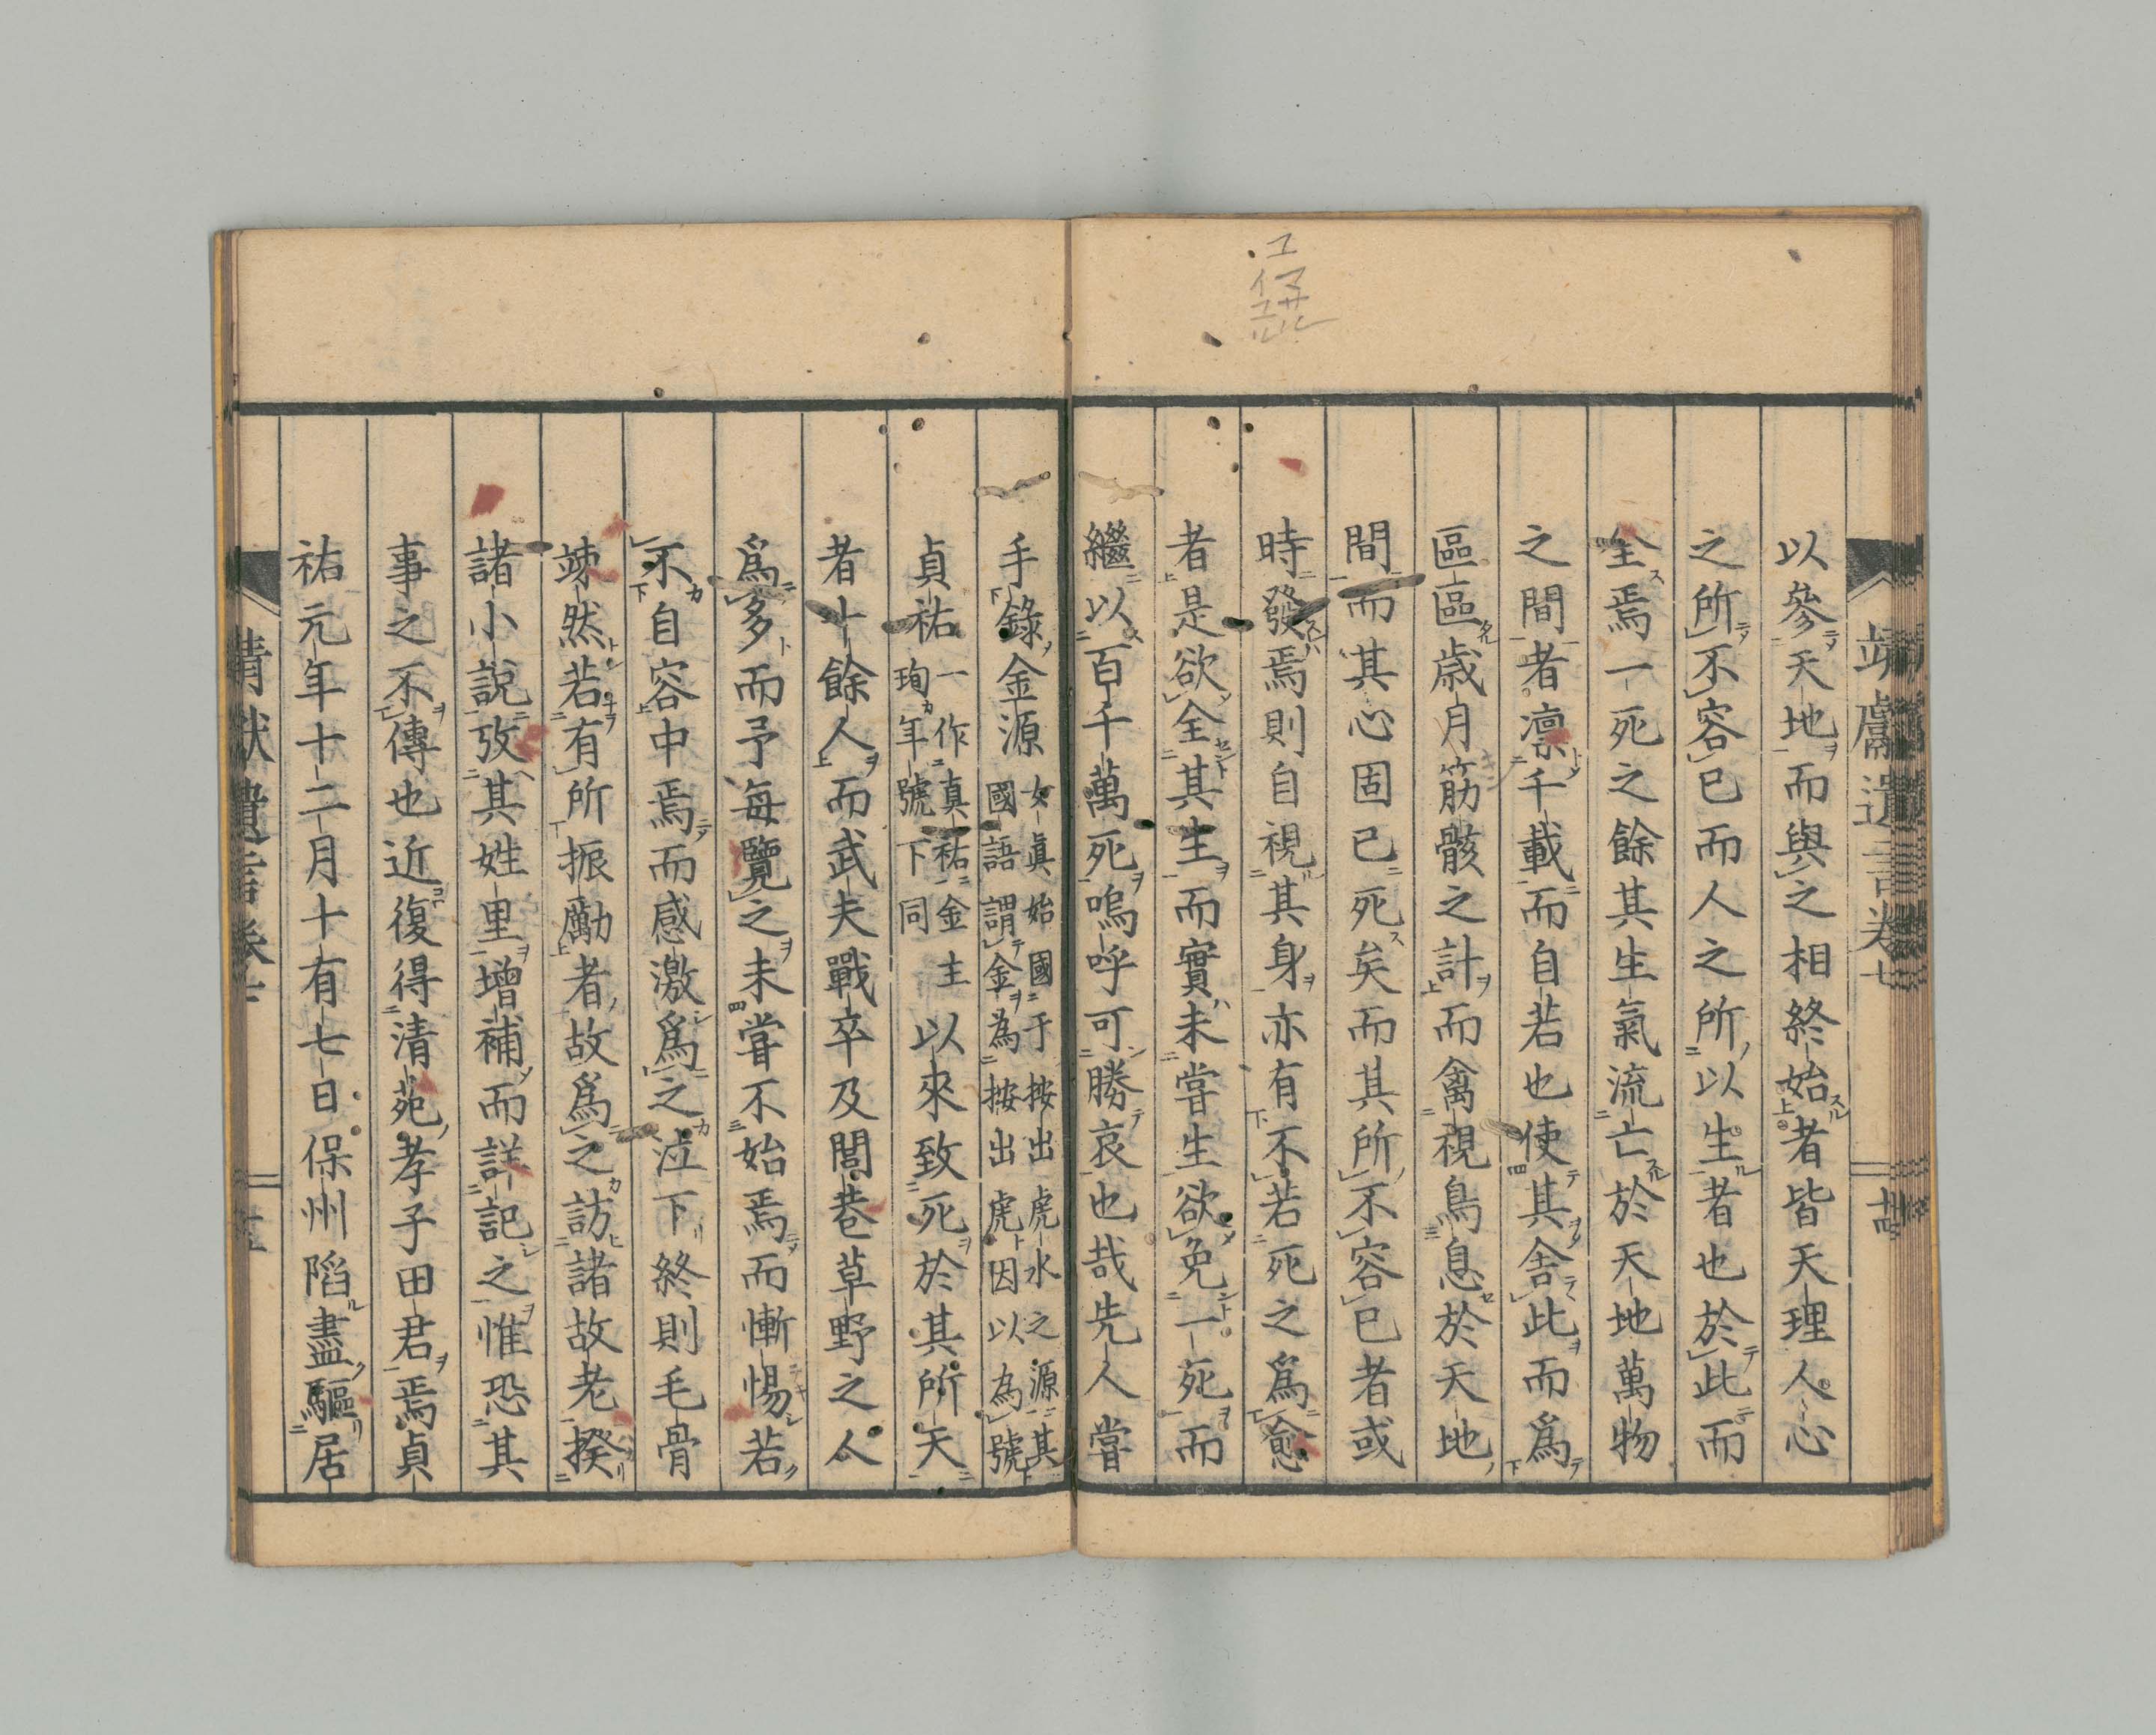 靖獻遺言卷七
以參天地而與之相終始者皆天理人心
之所不容已而人之所以生者也於此而
全焉一死之餘其生氣流亡於天地萬物
之間者凛千載而自若也使其舍此而爲
區區歳月筋骸之計而禽視鳥息於天地
間而其心固已死矣而其所不容已者或
時發焉則自視其身亦有不若死之爲愈
者是欲全其生而實未嘗生欲免一死而
繼以百千萬死嗚呼可勝哀也哉先人嘗
手錄金源女眞始國于按出虎水之源其
國語謂金為按出虎因以為號
貞祐一作真祐金主
珣年號下同以來致死於其所天
者十餘人而武夫戰卒及閭巷草野之人
爲多而予每覽之未嘗不始焉而慚惕若
不自容中焉而感激爲之泣下終則毛骨
竦然若有所振勵者故爲之訪諸故老揆
諸小說攷其姓里增補而詳記之惟恐其
事之不傳也近復得清苑孝子田君焉貞
祐元年十二月十有七日保州陷盡驅居
靖獻遺言卷七